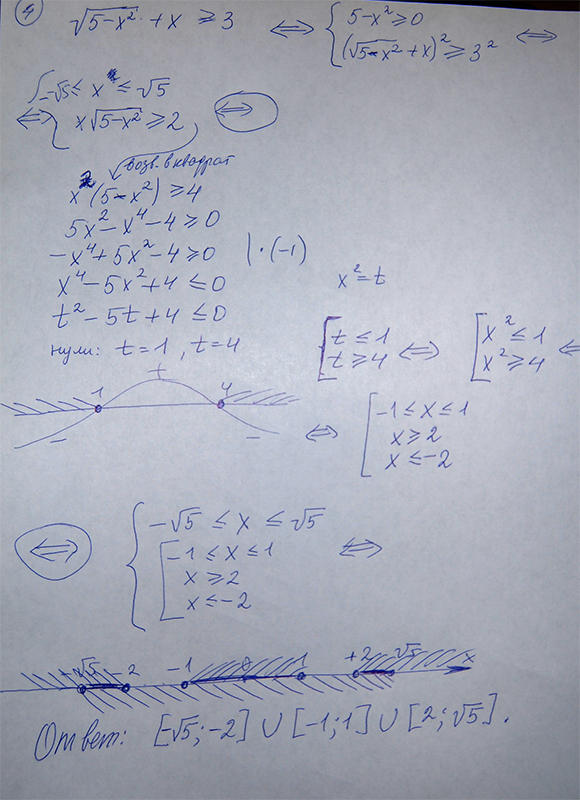 4
√5-x² + x ≥ 3 ⇔ { 5-x² ≥ 0
(√5-x² + x)² ≥ 3² ⇔
{ -√5 ≤ x ≤ √5
⇔ x√5-x² ≥ 2 ⇔
возв. в квадрат
x²(5-x²) ≥ 4
5x²-x⁴-4 ≥ 0
-x⁴+5x²-4 ≥ 0 | · (-1)
x⁴-5x²+4 ≤ 0
x² = t
t²-5t+4 ≤ 0
нули: t=1, t=4
[ t ≤ 1
t ≥ 4 ⇔ [ x² ≤ 1
x² ≥ 4 ⇔
1 + 4
- -
⇔ [ -1 ≤ x ≤ 1
x ≥ 2
x ≤ -2
⇔ { -√5 ≤ x ≤ √5
[ -1 ≤ x ≤ 1
x ≥ 2
x ≤ -2 ⇔
√5 -2 -1 0 1 +2 √5 x
Ответ: [-√5; -2] ∪ [-1; 1] ∪ [2; √5].